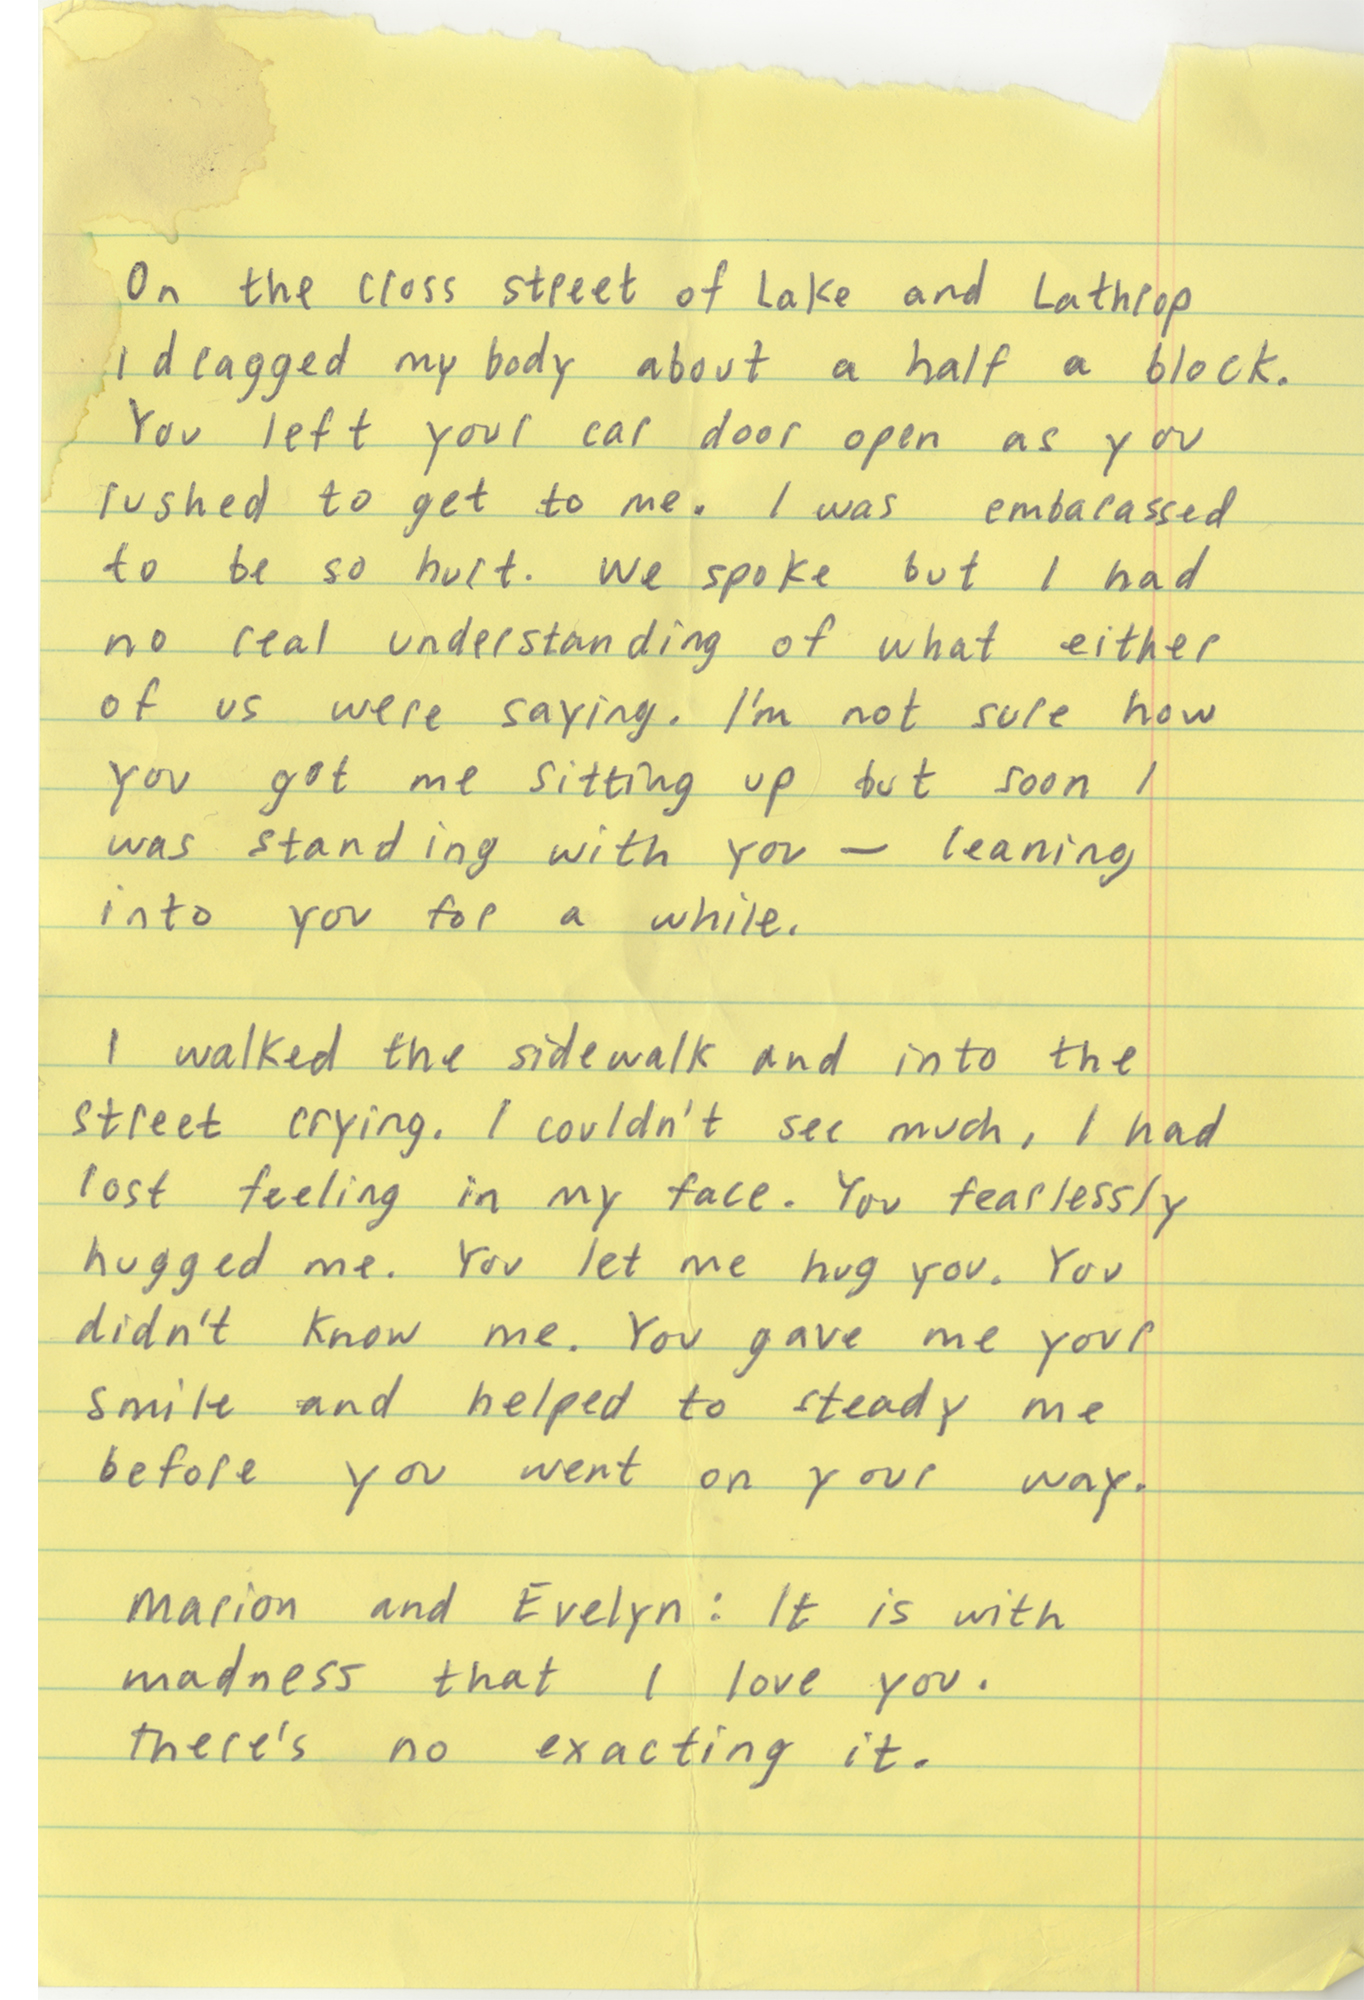 On the cross street of Lake and Lathrop
I dragged my body about a half a block.
You left your car door open as you
rushed to get to me. I was embarassed
to be so hurt. We spoke but I had
no real understanding of what either
of us were saying. I'm not sure how
you got me sitting up but soon I
was standing with you — leaning
into you for a while.
I walked the sidewalk and into the
street crying. I couldn't see much, I had
lost feeling in my face. You fearlessly
hugged me. You let me hug you. You
didn't know me. You gave me your
smile and helped to steady me
before you went on your way.
Marion and Evelyn: It is with
madness that I love you.
There's no exacting it.